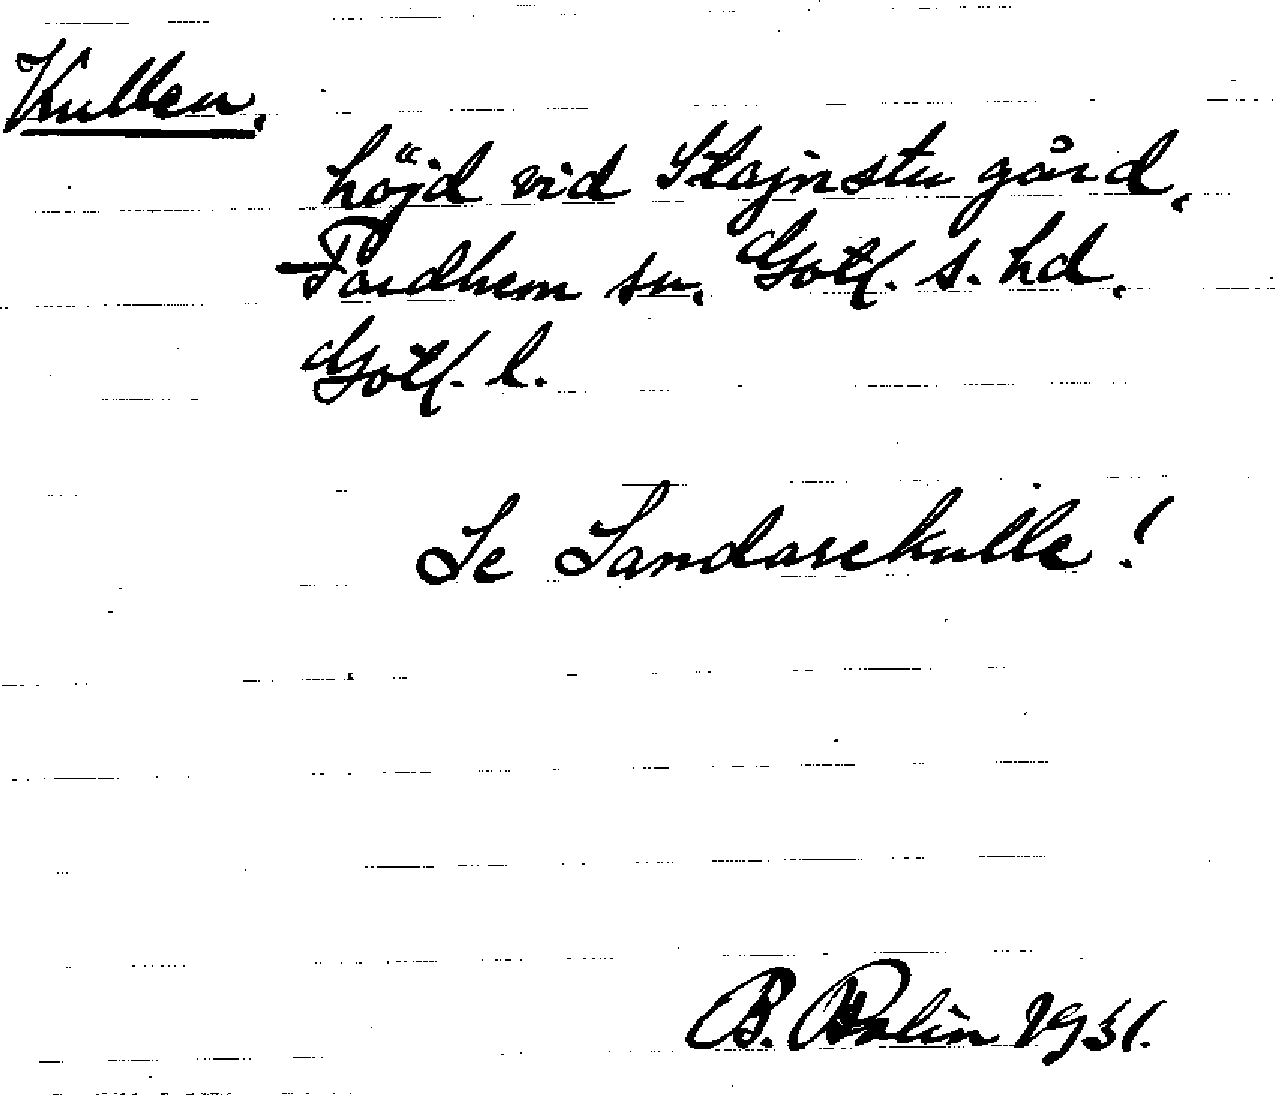 Kullen.
höjd vid Stajnstu gård,
Fardhem sn. Gotl. s. hd.
Gotl. l.
Se Sandarekulle!
B. Bolin 1931.